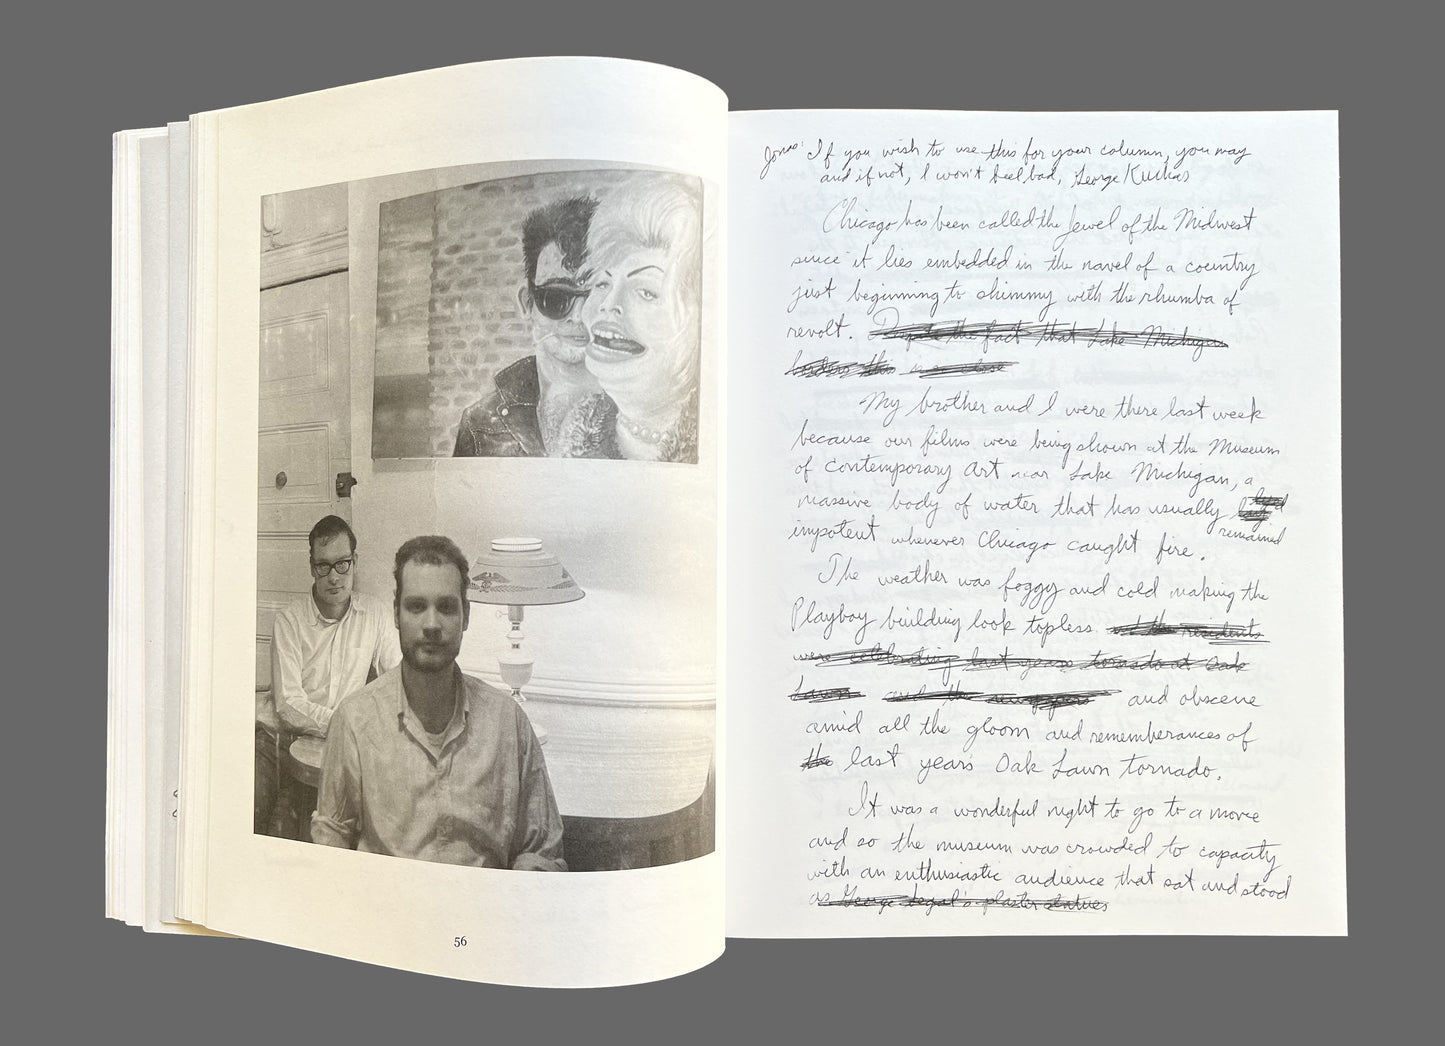 56
Jonas: If you wish to use this for your column, you may
and if not, I won't feel bad, George Kuchar
Chicago has been called the Jewel of the Midwest
since it lies embedded in the navel of a country
just beginning to shimmy with the rhumba of
revolt. Despite the fact that Lake Michigan
borders this in a close
My brother and I were there last week
because our films were being shown at the Museum
of Contemporary Art near Lake Michigan, a
massive body of water that has usually
remained
impotent whenever Chicago caught fire.
The weather was foggy and cold making the
Playboy building look topless and the residents
were celebrating last years tornado at Oak
Lawn and the and obscene
amid all the gloom and rememberances of
the last year's Oak Lawn tornado.
It was a wonderful night to go to a movie
and so the museum was crowded to capacity
with an enthusiastic audience that sat and stood
as George Segal's plaster statues